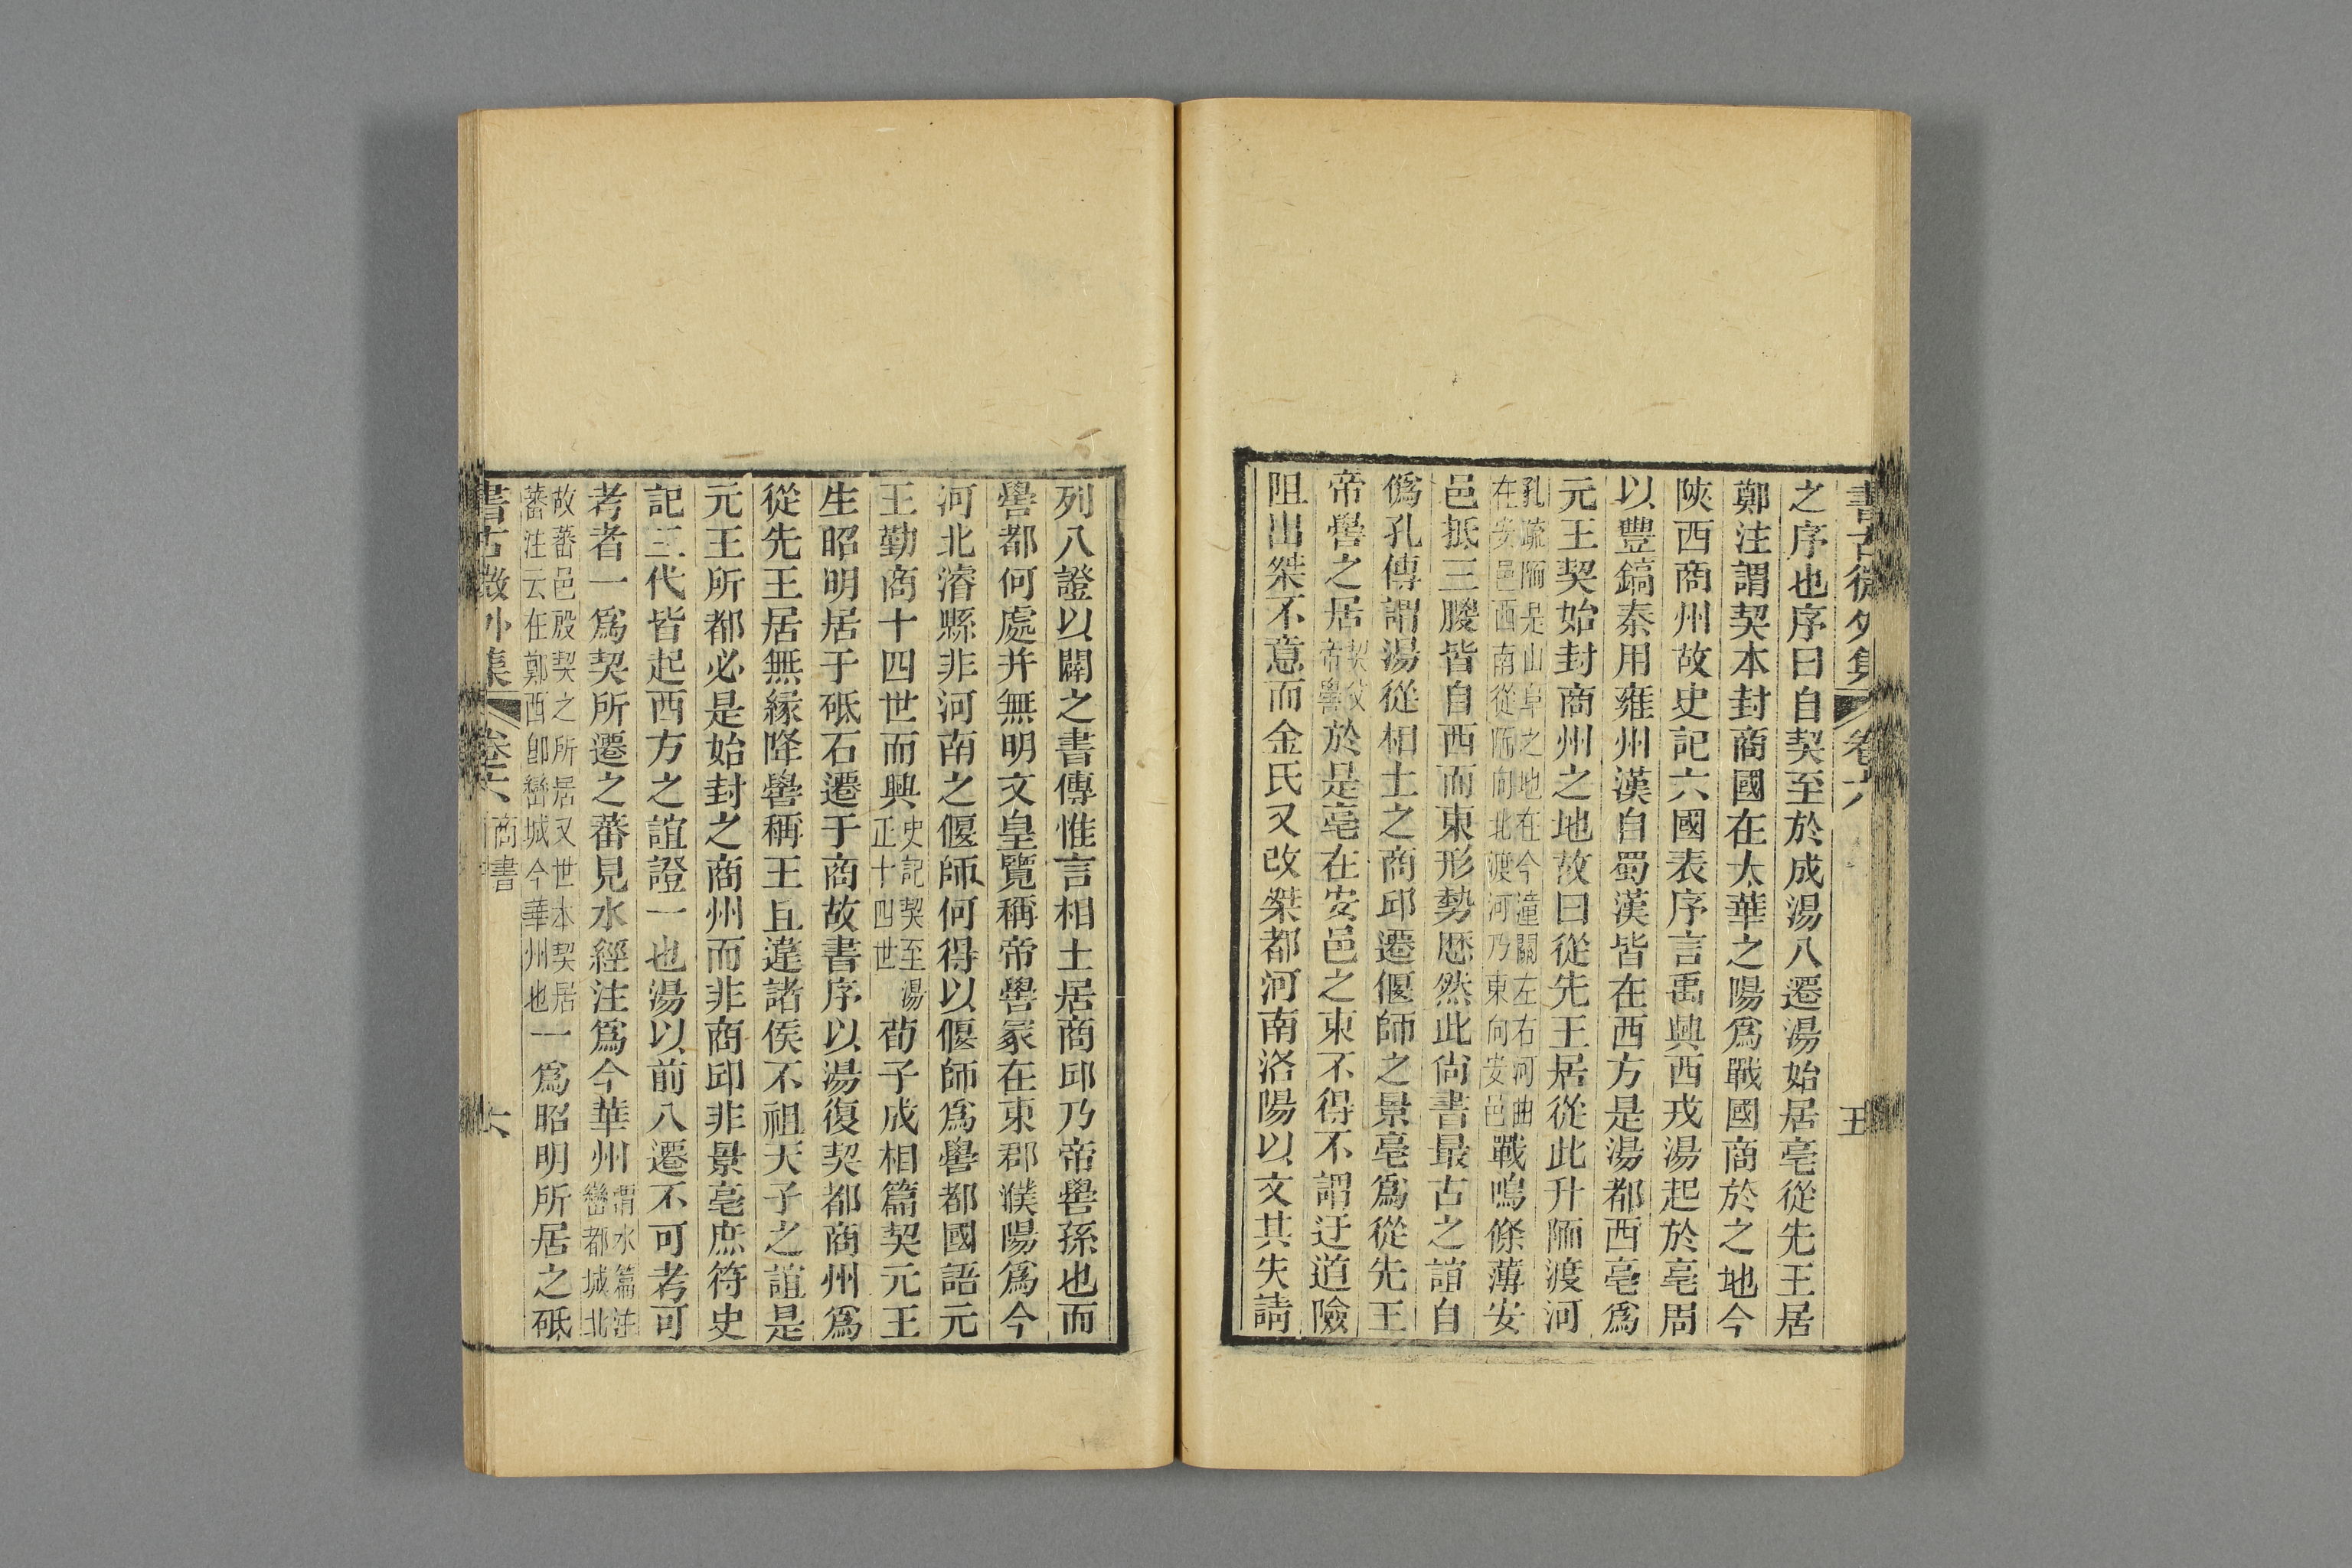 書古微外集 卷六 五
之序也序曰自契至於成湯八遷湯始居亳從先王居
鄭注謂契本封商國在太華之陽爲戰國商於之地今
陜西商州故史記六國表序言禹興西戎湯起於亳周
以豐鎬秦用雍州漢自蜀漢皆在西方是湯都西亳爲
元王契始封商州之地故曰從先王居從此升陑渡河
孔疏陑是山阜之地在今潼關左右河曲
在安邑西南從陑向北渡河乃東向安邑
戰鳴條薄安
邑抵三朡皆自西而東形勢厯然此尙書最古之誼自
僞孔傳謂湯從相土之商邱遷偃師之景亳爲從先王
帝嚳之居契父帝嚳於是亳在安邑之東不得不謂迂道險
阻出桀不意而金氏又改桀都河南洛陽以文其失請
列八證以闢之書傳惟言相土居商邱乃帝嚳孫也而
嚳都何處并無明文皇覽稱帝嚳冢在東郡濮陽爲今
河北濬縣非河南之偃師何得以偃師爲嚳都國語元
王勤商十四世而興史記契至湯正十四世荀子成相篇契元王
生昭明居于砥石遷于商故書序以湯復契都商州爲
從先王居無緣降嚳稱王且違諸侯不祖天子之誼是
元王所都必是始封之商州而非商邱非景亳庶符史
記三代皆起西方之誼證一也湯以前八遷不可考可
考者一爲契所遷之蕃見水經注爲今華州渭水篇注巒都城北
故蕃邑殷契之所居又世本契居
蕃注云在鄭西卽巒城今華州也
一爲昭明所居之砥
書古微外集 卷六 商書 六